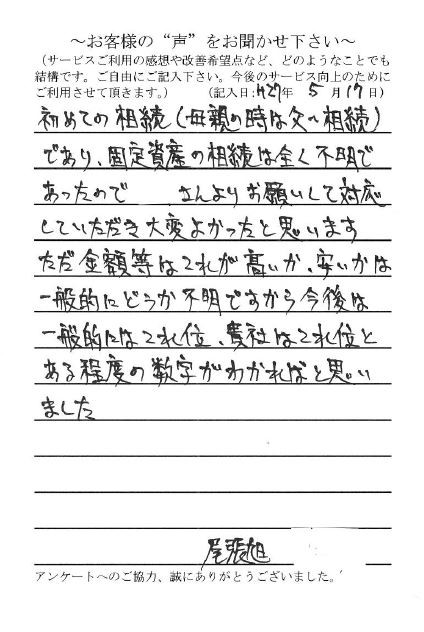 ～お客様の“声”をお聞かせ下さい～
（サービスご利用の感想や改善希望点など、どのようなことでも
結構です。ご自由にご記入下さい。今後のサービス向上のために
ご利用させて頂きます。）　（記入日:H27年 5月17日）
初めての相続(母親の時は父へ相続)
であり、固定資産の相続は全く不明で
あったので　　さんよりお願いして対応
していただき大変よかったと思います
ただ金額等はこれが高いか、安いかは
一般的にどうか不明ですから今後は
一般的にはこれ位、貴社はこれ位と
ある程度の数字がわかればと思い
ました
尾張旭
アンケートへのご協力、誠にありがとうございました。